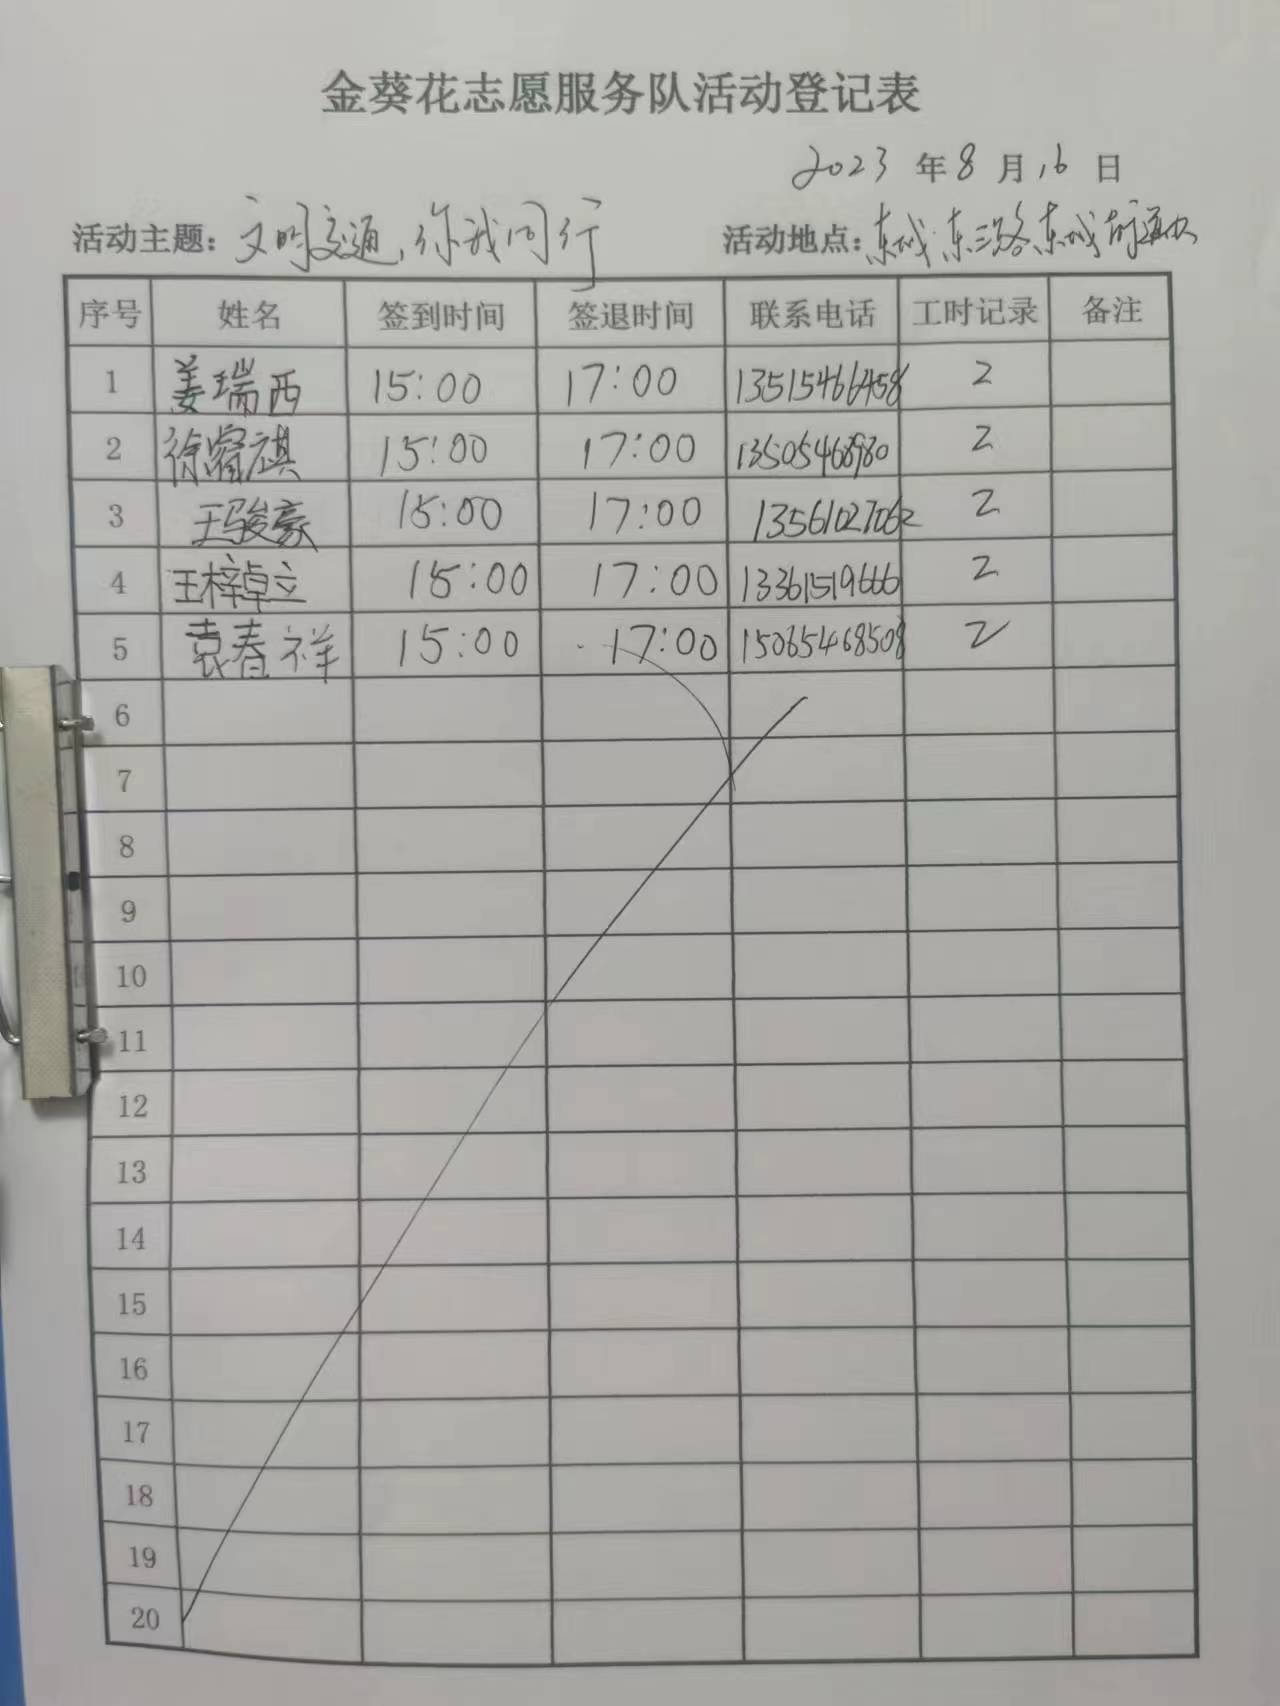 金葵花志愿服务队活动登记表
2023 年 8 月 16 日
活动主题：文明交通，你我同行 活动地点：东城东三路东城
序号 姓名 签到时间 签退时间 联系电话 工时记录 备注
1 姜瑞西 15:00 17:00 13515466458 2
2 徐睿祺 15:00 17:00 13505468980 2
3 王骏豪 15:00 17:00 13561027062 2
4 王梓卓立 15:00 17:00 13361519666 2
5 袁春祥 15:00 17:00 15065468508 2
6
7
8
9
10
11
12
13
14
15
16
17
18
19
20